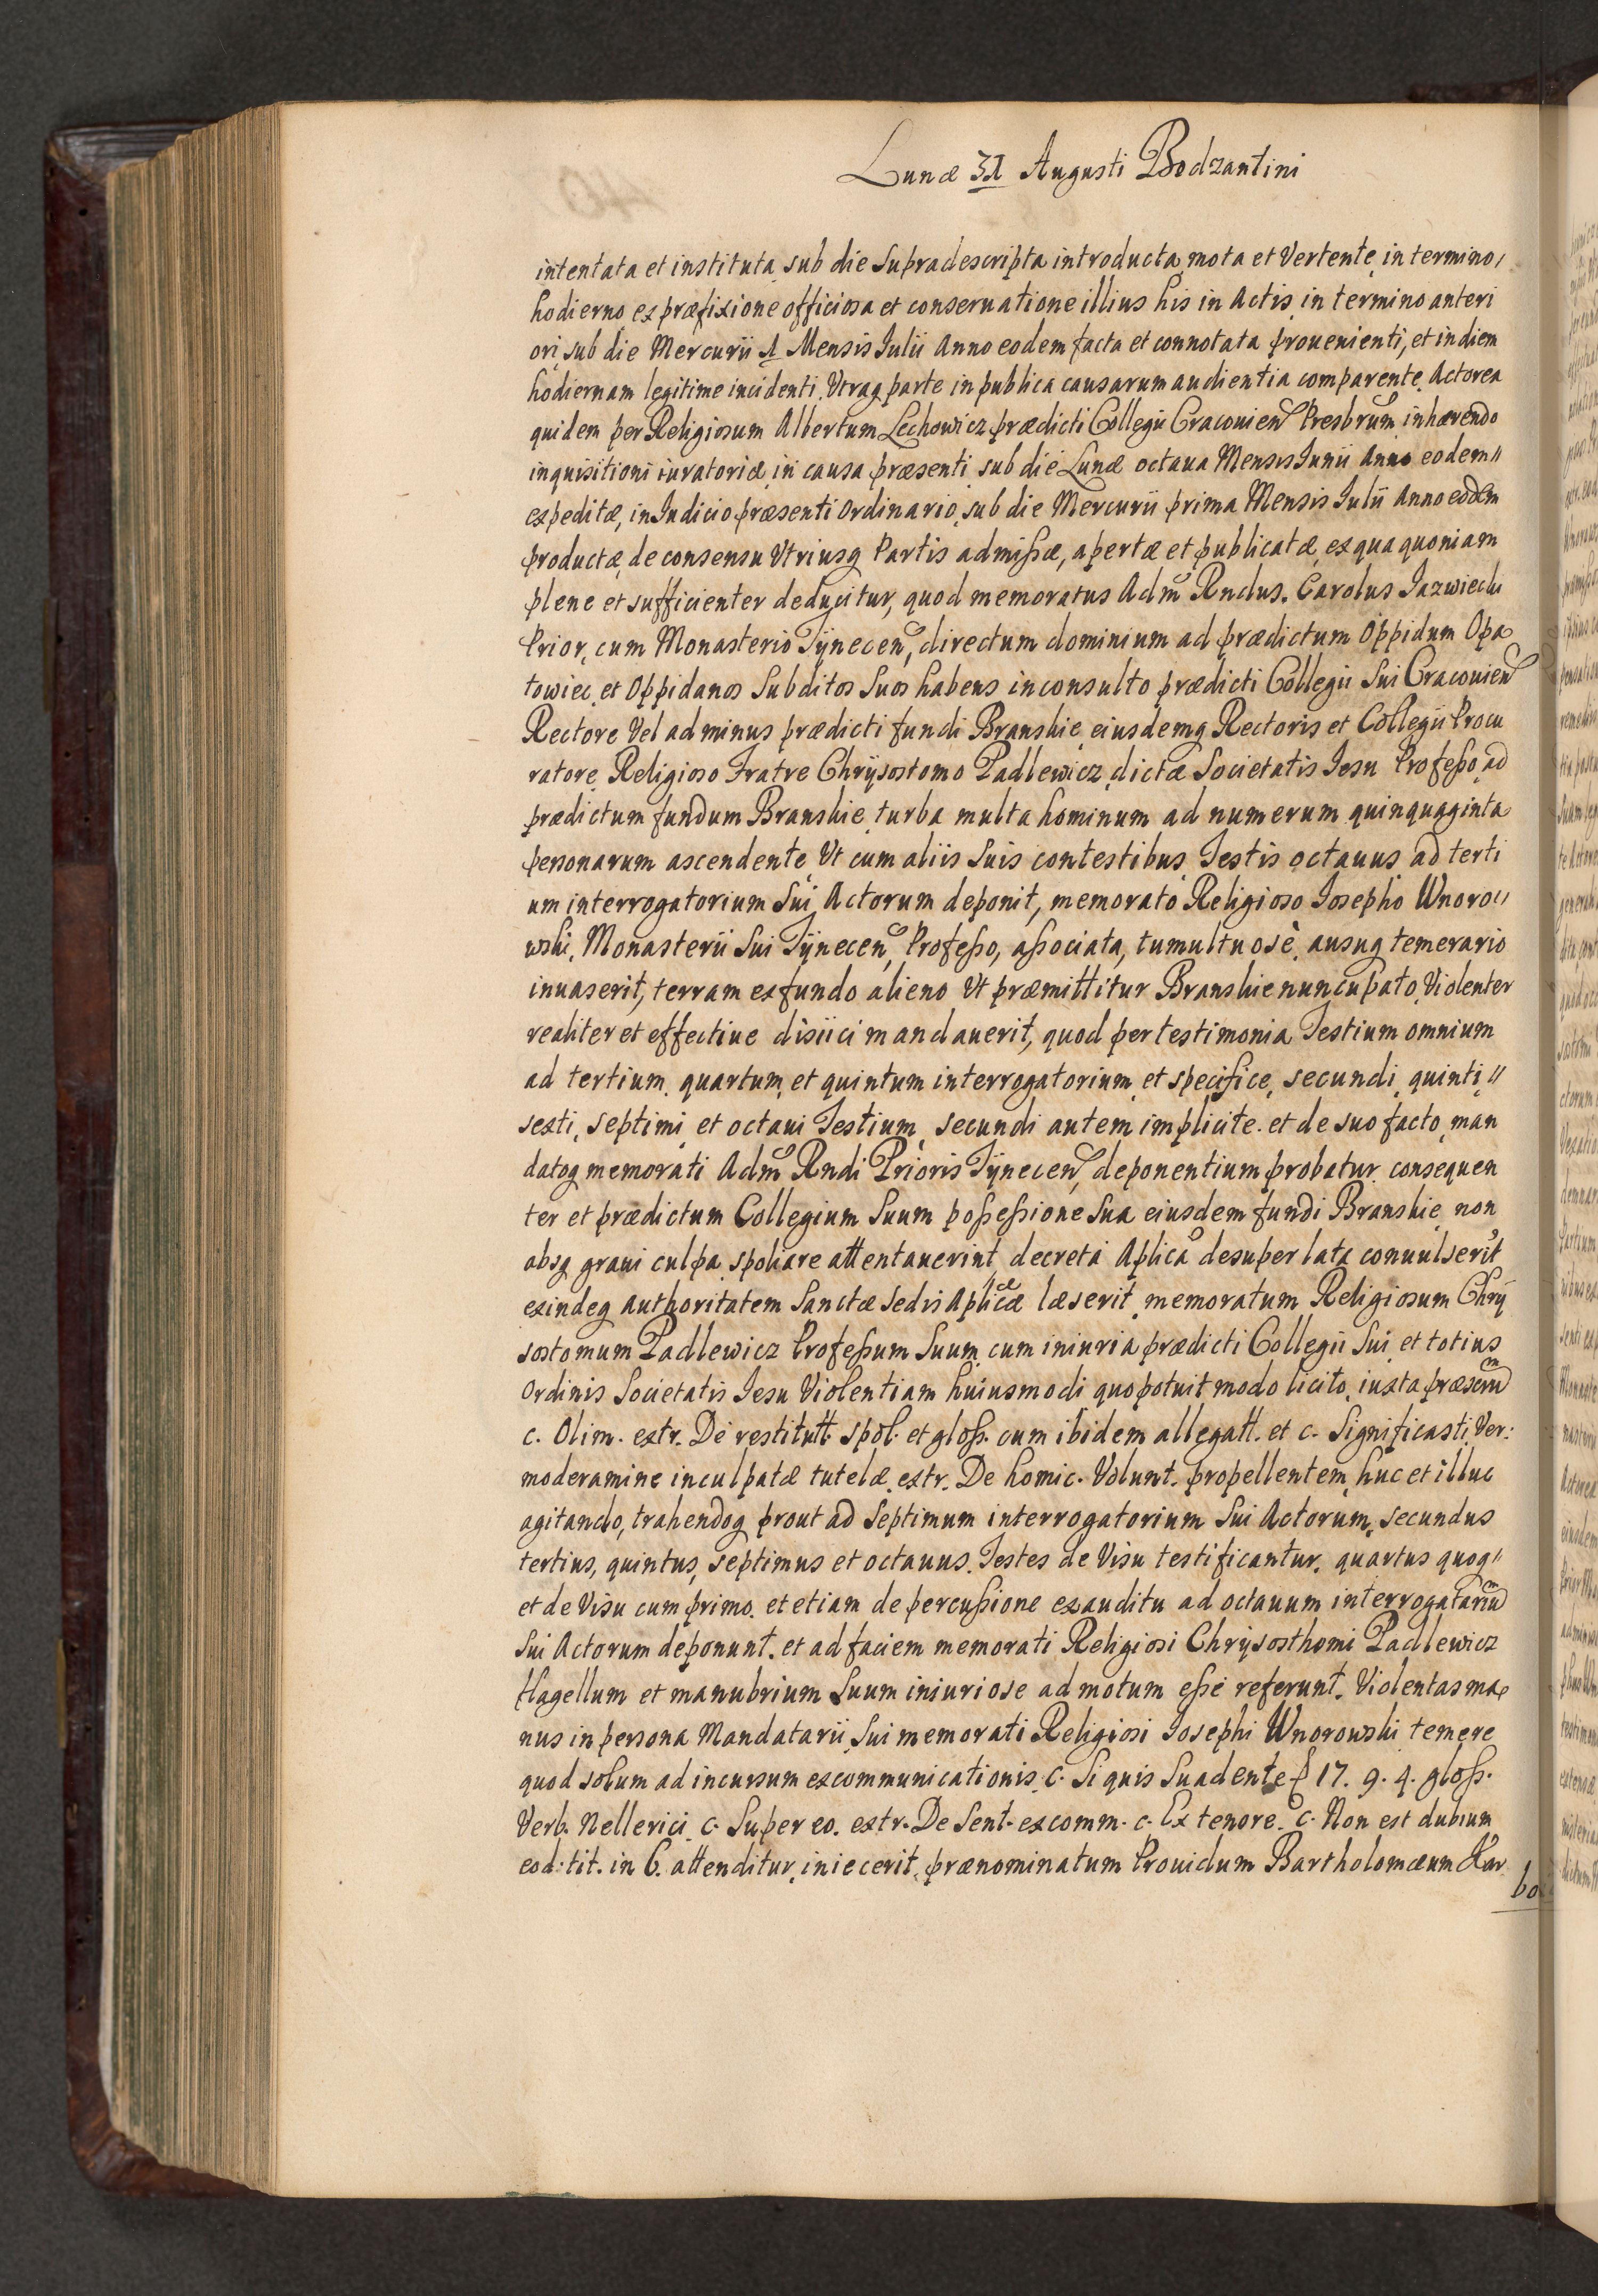 Lunæ 31 Augusti Bodzantini
intentata et instituta, sub die Supradescripta introducta, mota et Vertente, in termino,
hodierno ex præfixione officiosa et conseruatione illius his in Actis, in termino anteri
ori sub die Mercurii 1 Mensis Iulii Anno eodem facta et connotata prouenienti, et in diem
hodiernam legitime incidenti. Vtraq parte in publica causarum audientia comparente. Actorea
quidem per Religiosum Albertum Lechowicz prædicti Collegii Cracouien Presbrum, inhærendo
inquisitioni iuratoriæ, in causa præsenti, sub die Lunæ octaua Mensis Iunii Anno eodem,,
expeditæ, in Iudicio præsenti Ordinario, sub die Mercurii prima Mensis Iulii Anno eodem
productæ, de consensu Vtriusq Partis admissæ, apertæ et publicatæ, ex qua quoniam
plene et sufficienter deducitur, quod memoratus Adm Rndus. Carolus Iazwiecki
Prior, cum Monasterio Tÿnecen, directum dominium ad prædictum Oppidum Opa
towiec, et Oppidanos Subditos Suos habens inconsulto prædicti Collegii Sui Cracouien
Rectore Vel ad minus prædicti fundi Branskie, eiusdemq Rectoris et Collegii Procu
ratore, Religioso Fratre Chrÿsostomo Padlewicz, dictæ Societatis Iesu Professo, ad
prædictum fundum Branskie, turba multa hominum ad numerum quinquaginta
personarum ascendente, Vt cum aliis Suis contestibus, Testis octauus ad terti
um interrogatorium Sui Actorum deponit, memorato Religioso Iosepho Wnoro,,
wski, Monasterii Sui Tÿnecen, Professo, associata, tumultuosè, ausuq temerario
inuaserit, terram ex fundo alieno Vt præmittitur Branskie nuncupato, Violenter
realiter et effectiue disiici mandauerit, quod per testimonia Testium omnium
ad tertium, quartum, et quintum interrogatorium, et specifice, secundi, quinti,,
sexti, septimi, et octaui Testium, secundi autem implicite. et de suo facto, man
datoq memorati Adm Rndi Prioris Tÿnecen, deponentium probatur. consequen
ter et prædictum Collegium Suum possessione Sua eiusdem fundi Branskie, non
absq graui culpa, spoliare attentauerint, decreta Aplica desuper lata conuulserit
exindeq Authoritatem Sanctæ Sedis Aplicæ læserit, memoratum Religiosum Chrÿ
sostomum Padlewicz Professum Suum, cum iniuria prædicti Collegii Sui, et totius
Ordinis Societatis Iesu Violentiam huiusmodi quo potuit modo licito, iuxta præscrm
c. Olim. extr. De restitutt. spol. et gloss. cum ibidem allegatt. et c. Significasti. Ver:
moderamine inculpatæ tutelæ. extr. De homic. Volunt. propellentem, huc et illuc
agitando, trahendoq prout ad Septimum interrogatorium Sui Actorum, secundus
tertius, quintus, septimus et octauus. Testes de Visu testificantur. quartus quoq,,
et de Visu cum primo. et etiam de percussione ex auditu ad octauum interrogatarium
Sui Actorum deponunt. et ad faciem memorati Religiosi Chrÿsosthomi Padlewicz
flagellum et manubrium Suum iniuriose admotum esse referunt. Violentas ma
nus in persona Mandatarii Sui memorati Religiosi Iosephi Wnorowski temere
quod solum ad incursum excommunicationis, c. Si quis Suadente 17. q. 4. gloss.
Verb. Nellerici, c. Super eo. extr. De Sent. excomm. c. Ex tenore. c. Non est dubium
eod: tit. in 6. attenditur, iniecerit, prænominatum Prouidum Bartholomæum Kar
bo